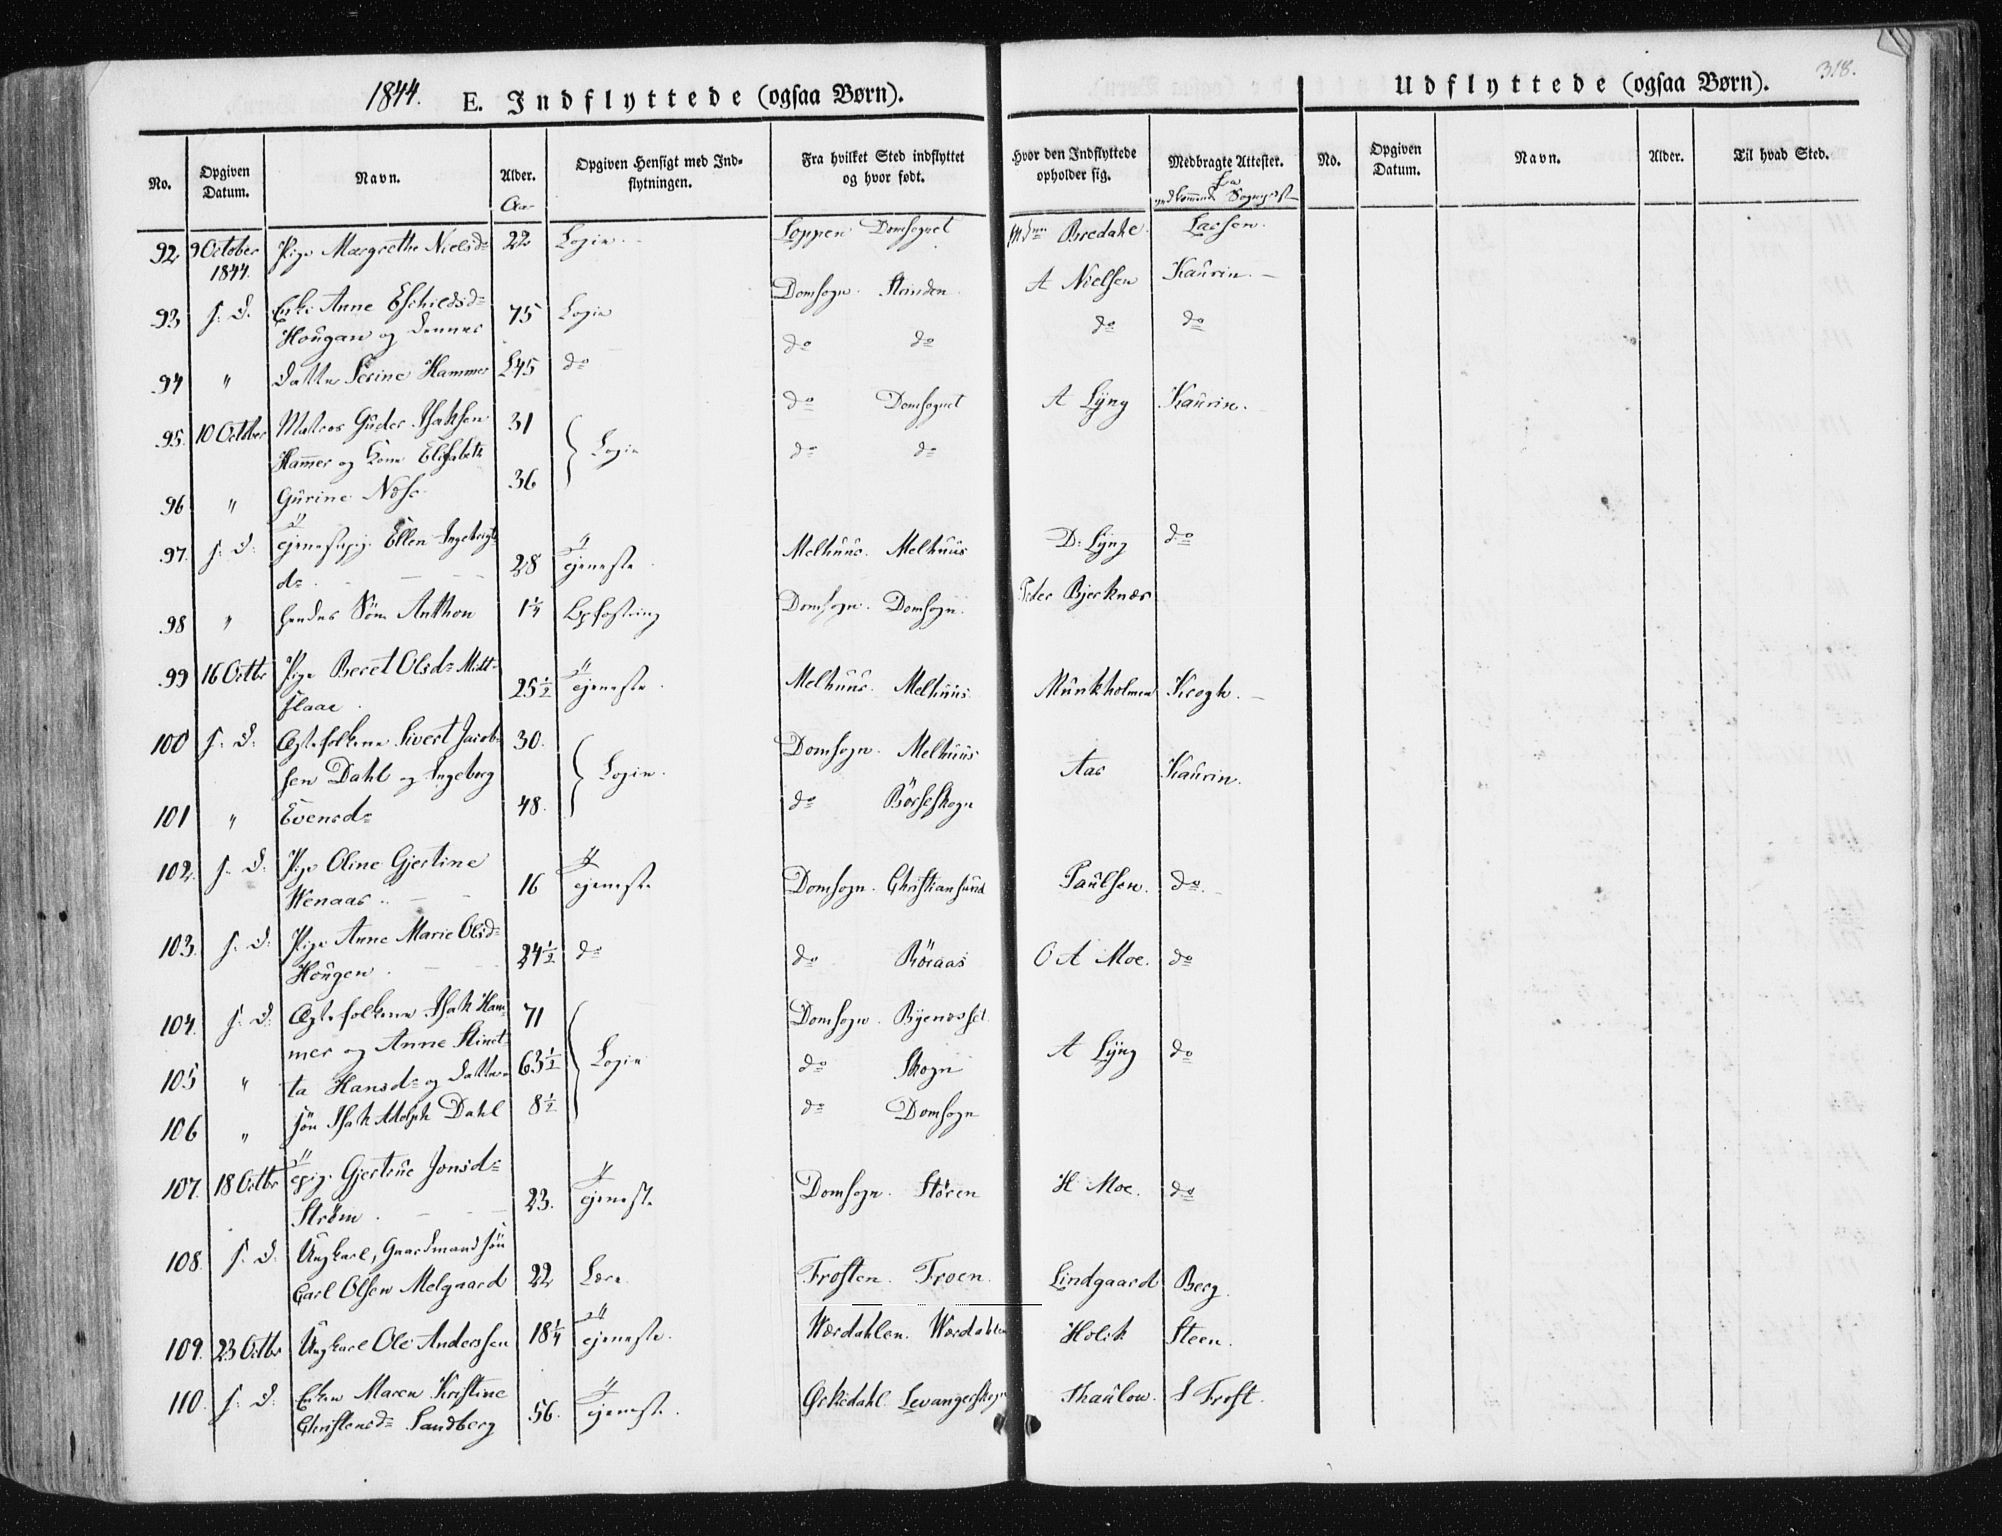 1844. E. Indflyttede (ogsaa Børn).
Udflyttede (ogsaa Børn). 318.
No. Opgiven Datum. Navn. Alder. Opgiven Hensigt med Indflytningen. Fra hvilket Sted indflyttet og hvor født. Hvor den Indflyttede opholder sig. Medbragte Attester. No. Opgiven Datum. Navn. Alder. Til hvad Sted.
Aar fra Sognepst
92 9 October 1844. Pige Margrethe Nielsd= 22 Logie Loppen Domsognet Bredahl. Larsen.
93 s. D. Enke Anne Eschildsd= 75 Logie Domsogn. Strinden A Nielsen Kaurin.
Hougan og dennes
94 " Datter Serine Hammer 45 do do do do do
95. 10 October Matros Guder Isaksen 31 Logie do Domsognet A Lÿng Kaurin.
Hammer og Kone Elisabeth
96 " Gurine Næss 36 do do
97. s. D. Tjenestepige Ellen Ingebrigts 28 Tjeneste Melhuus. Melhuus D. Lÿng do
d=
98 " hendes Søn Anthon 1¼ Opfostring Domsogn. Domsogn. Peder Bjerknæs
99 16 Octbr Pige Beret Olsd= Midt- 25½ Tjeneste Melhuus. Melhuus Munkholmen Krogh.
flaae
100 s. D. Ægtefolkene Sivert Jacob- 30. Logie. Domsogn. Melhuus Aas Kaurin.
sen Dahl og Ingeborg
101 " Evensd= 48. do Börseskogn
102. s. D. Pige Oline Gjertine 16 Tjeneste Domsogn. Christiansund Paulsen. do
Wenaas
103. s. D. Pige Anne Marie Olsd= 24½ do do Röraas O A Moe. do
Hougen
104. s. D. Ægtefolkene Isak Ham- 71 Logie Domsogn. Byenæsset A Lÿng do
mer og Anne Stinet-
105 " ta Hansd= og Datter- 63½ do Skogn
106 " søn Isak Adolph Dahl 8½ do Domsogn
107. 18 Octbr Tpige Gjertrue Jonsd= 23. Tjeneste Domsogn. Stören H Moe. do
Ström
108. s. D. Ungkarl, Gaardmandsøn 22 Lære Frosten. Froen. Lindgaard Berg.
Carl Olsen Melgaard
109. 23 Octbr Ungkarl Ole Andersen 18¼ Tjeneste. Wærdahlen. Wærdahlen Holck Steen.
110. s. D. Enken Maren Kristine 56. Tjeneste. Ørkedahl. Levangerskogn Thaulow. S Frost.
Christensd= Sandberg